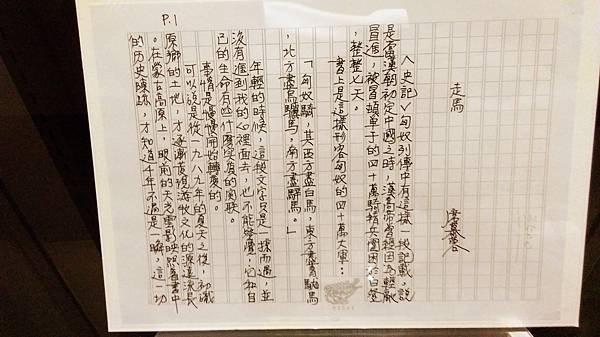 P.1
走馬
席慕蓉
〈史記〉匈奴列傳中有這樣一段記載,說
是當漢朝初定中國之時,漢高帝曾經因為輕敵
冒進,被冒頓單于的四十萬騎精兵圍困於白登
,整整七天。
書上是這樣形容匈奴的四十萬大軍:
「匈奴騎,其西方盡白馬,東方盡青駹馬
,北方盡烏驪馬,南方盡騂馬。」
年輕的時候,這段文字只是一掠而過,並
沒有進到我的心裡面去,也不能察覺它和自
己的生命有些什麼深度的関联。
事情是慢慢開始轉變的。
可以說是從一九八九年的夏天之後,初識
原鄉的土地,才逐漸發現游牧文化的源遠流長
。在蒙古高原上,眼前的天光雲影映照着書中
的历史陳跡,才知道千年不過是一瞬,這一切